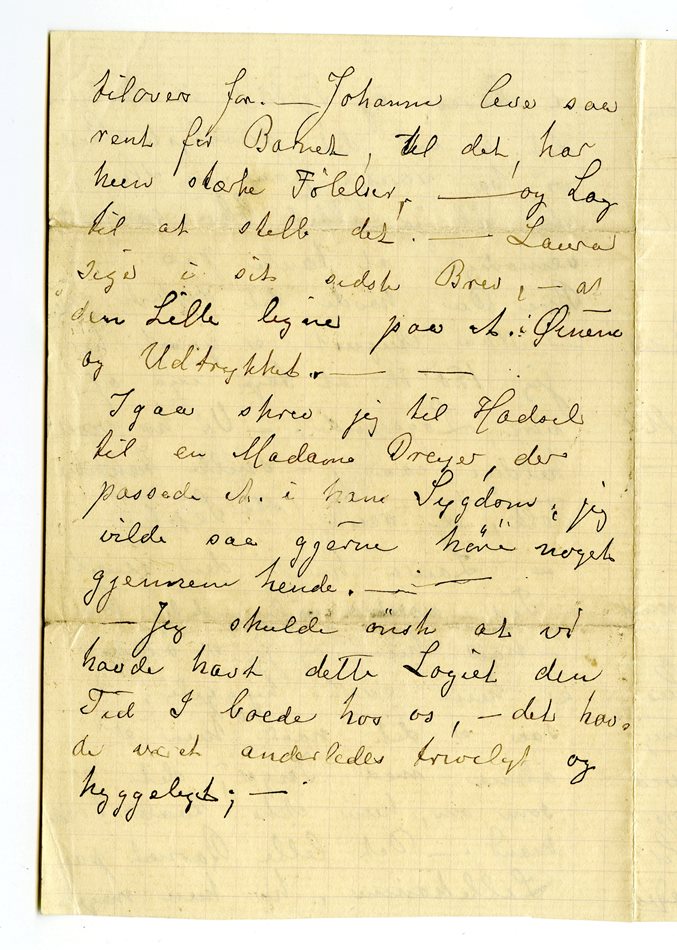 tilovers for. — Johanne leve saa
rent for Barnet, til det, har
hun stærke Følelser, — og Lag
til at stelle det. — Laura
sige i sit sidste Brev, — at
den Lille ligne paa A. i Øinene
og Udtrykket. — —
Igaa skrev jeg til Hadsel
til en Madame Dreyer, der
passede A. i hans Sygdom; jeg
vilde saa gjerne høre noget
gjennem hende. —
— Jeg skulde ønske at vi
havde havt dette Logiet den
Tid I boede hos os, — det hav-
de været anderledes triveligt og
hyggeligt; —